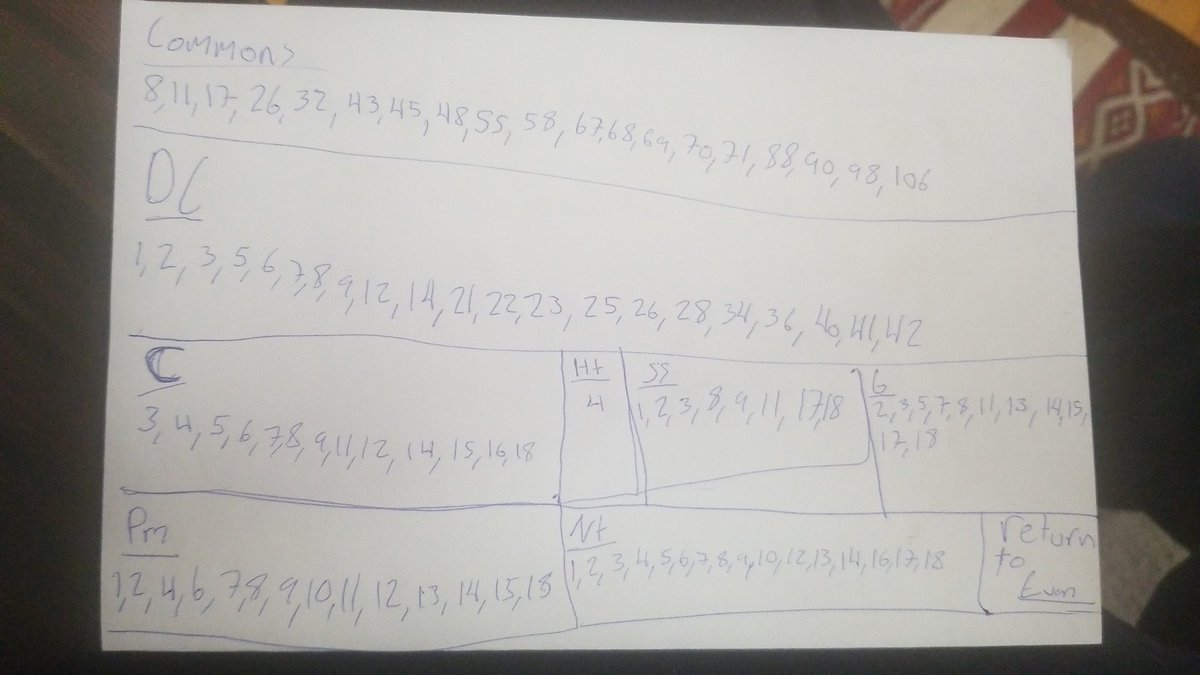 Commons
8,11,17,26,32,43,45,48,55,58,67,68,69,70,71,88,90,98,106
DC
1,2,3,5,6,7,8,9,12,14,21,22,23,25,26,28,34,36,40,41,42
C
3,4,5,6,7,8,9,11,12,14,15,16,18
Ht
4
SS
1,2,3,8,9,11,17,18
G
2,3,5,7,8,11,13,14,15,
17,18
Pm
1,2,4,6,7,8,9,10,11,12,13,14,15,18
Nt
1,2,3,4,5,6,7,8,9,10,12,13,14,16,17,18
return
to
Evan